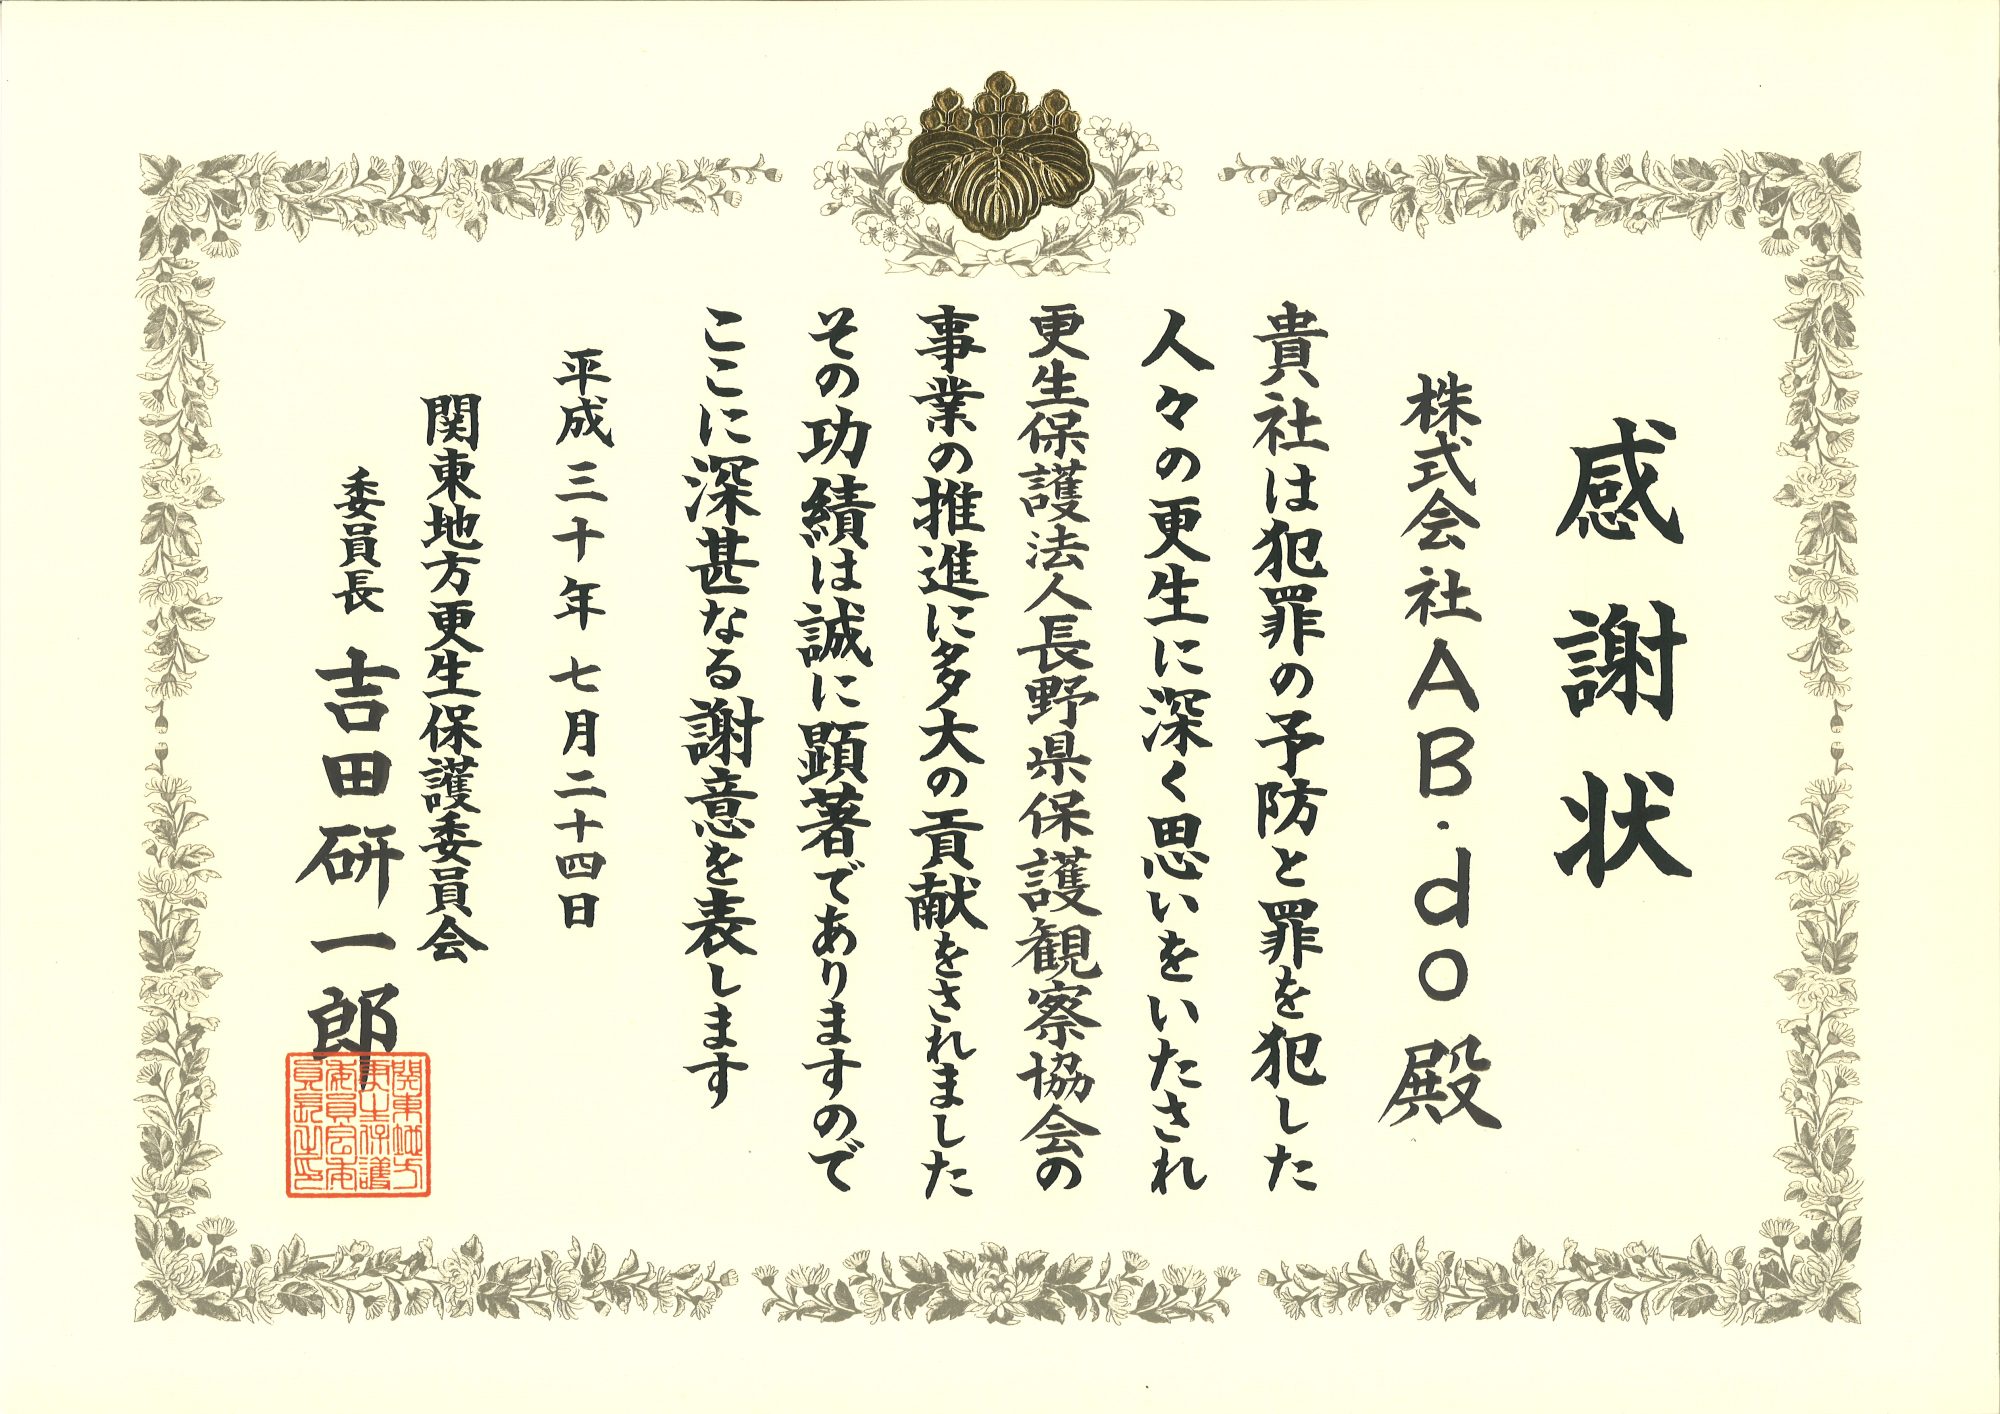 感謝状
株式会社AB.do殿
貴社は犯罪の予防と罪を犯した
人々の更生に深く思いをいたされ
更生保護法人長野県保護観察協会の
事業の推進に多大の貢献をされました
その功績は誠に顕著でありますので
ここに深甚なる謝意を表します
平成三十年七月二十四日
関東地方更生保護委員会
委員長 吉田研一郎
関東地方
更生保護
委員会委
員長之印